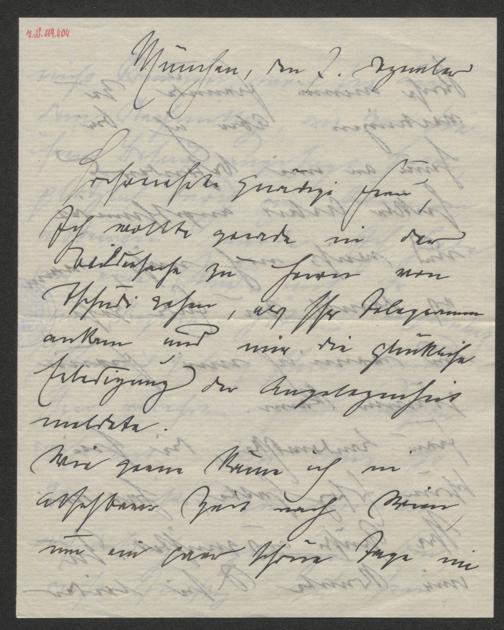 München, den 2. Dezember
Hochverehrte gnädige Frau,
Ich wollte gerade in der
zu Herrn von
Tschudi gehen, als Ihr Telegramm
ankam und mir die glückliche
Erledigung der Angelegenheit
meldete.
Wie gerne käme ich in
absehbarer Zeit nach Wien
um ein paar schöne Tage in